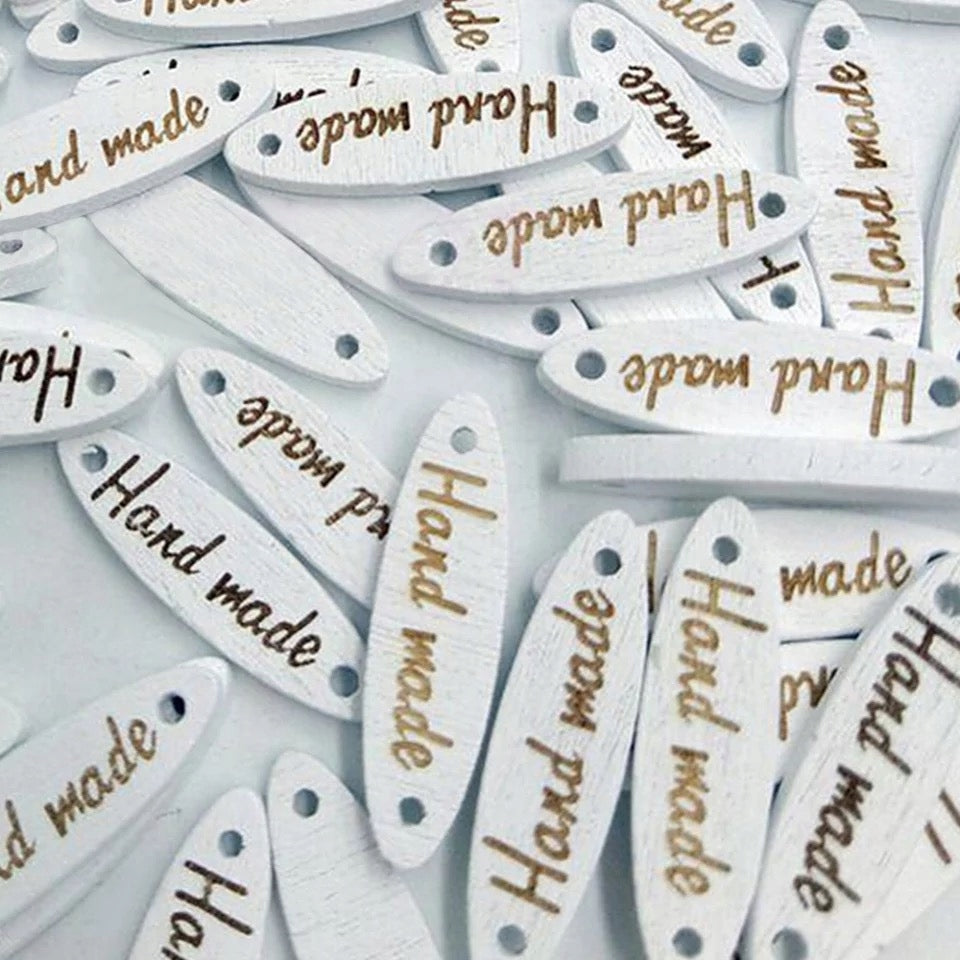 Hand made
made
made
Hand made
Hand made
Hand made
made
H
Hand made
Hand made
Hand made
Han
Hand made
Hand made
Hand made
Hand made
Hand made
made
Hand made
nd made
Han